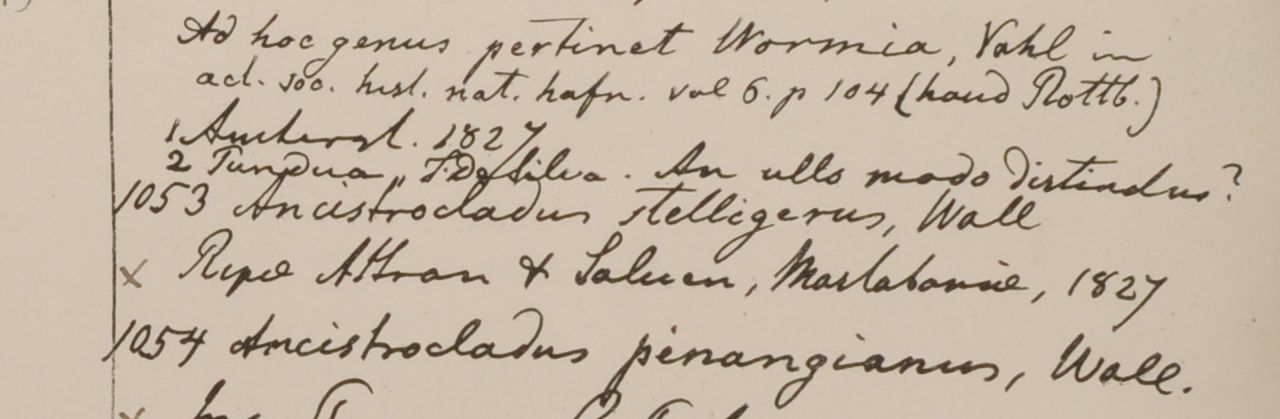 Ad hoc genus pertinet Wormia, Vahl in
act. soc. hist. nat. hafn. vol 6. p 104 (haud Rottb.)
1 Amherst. 1827
2 Tunpua „ F. De Silva. An ullo modo distinctus?
1053 Ancistrocladus stelligerus, Wall
x Ripæ Attran & Saluen, Martabaniæ, 1827
1054 Ancistrocladus pinangianus, Wall.